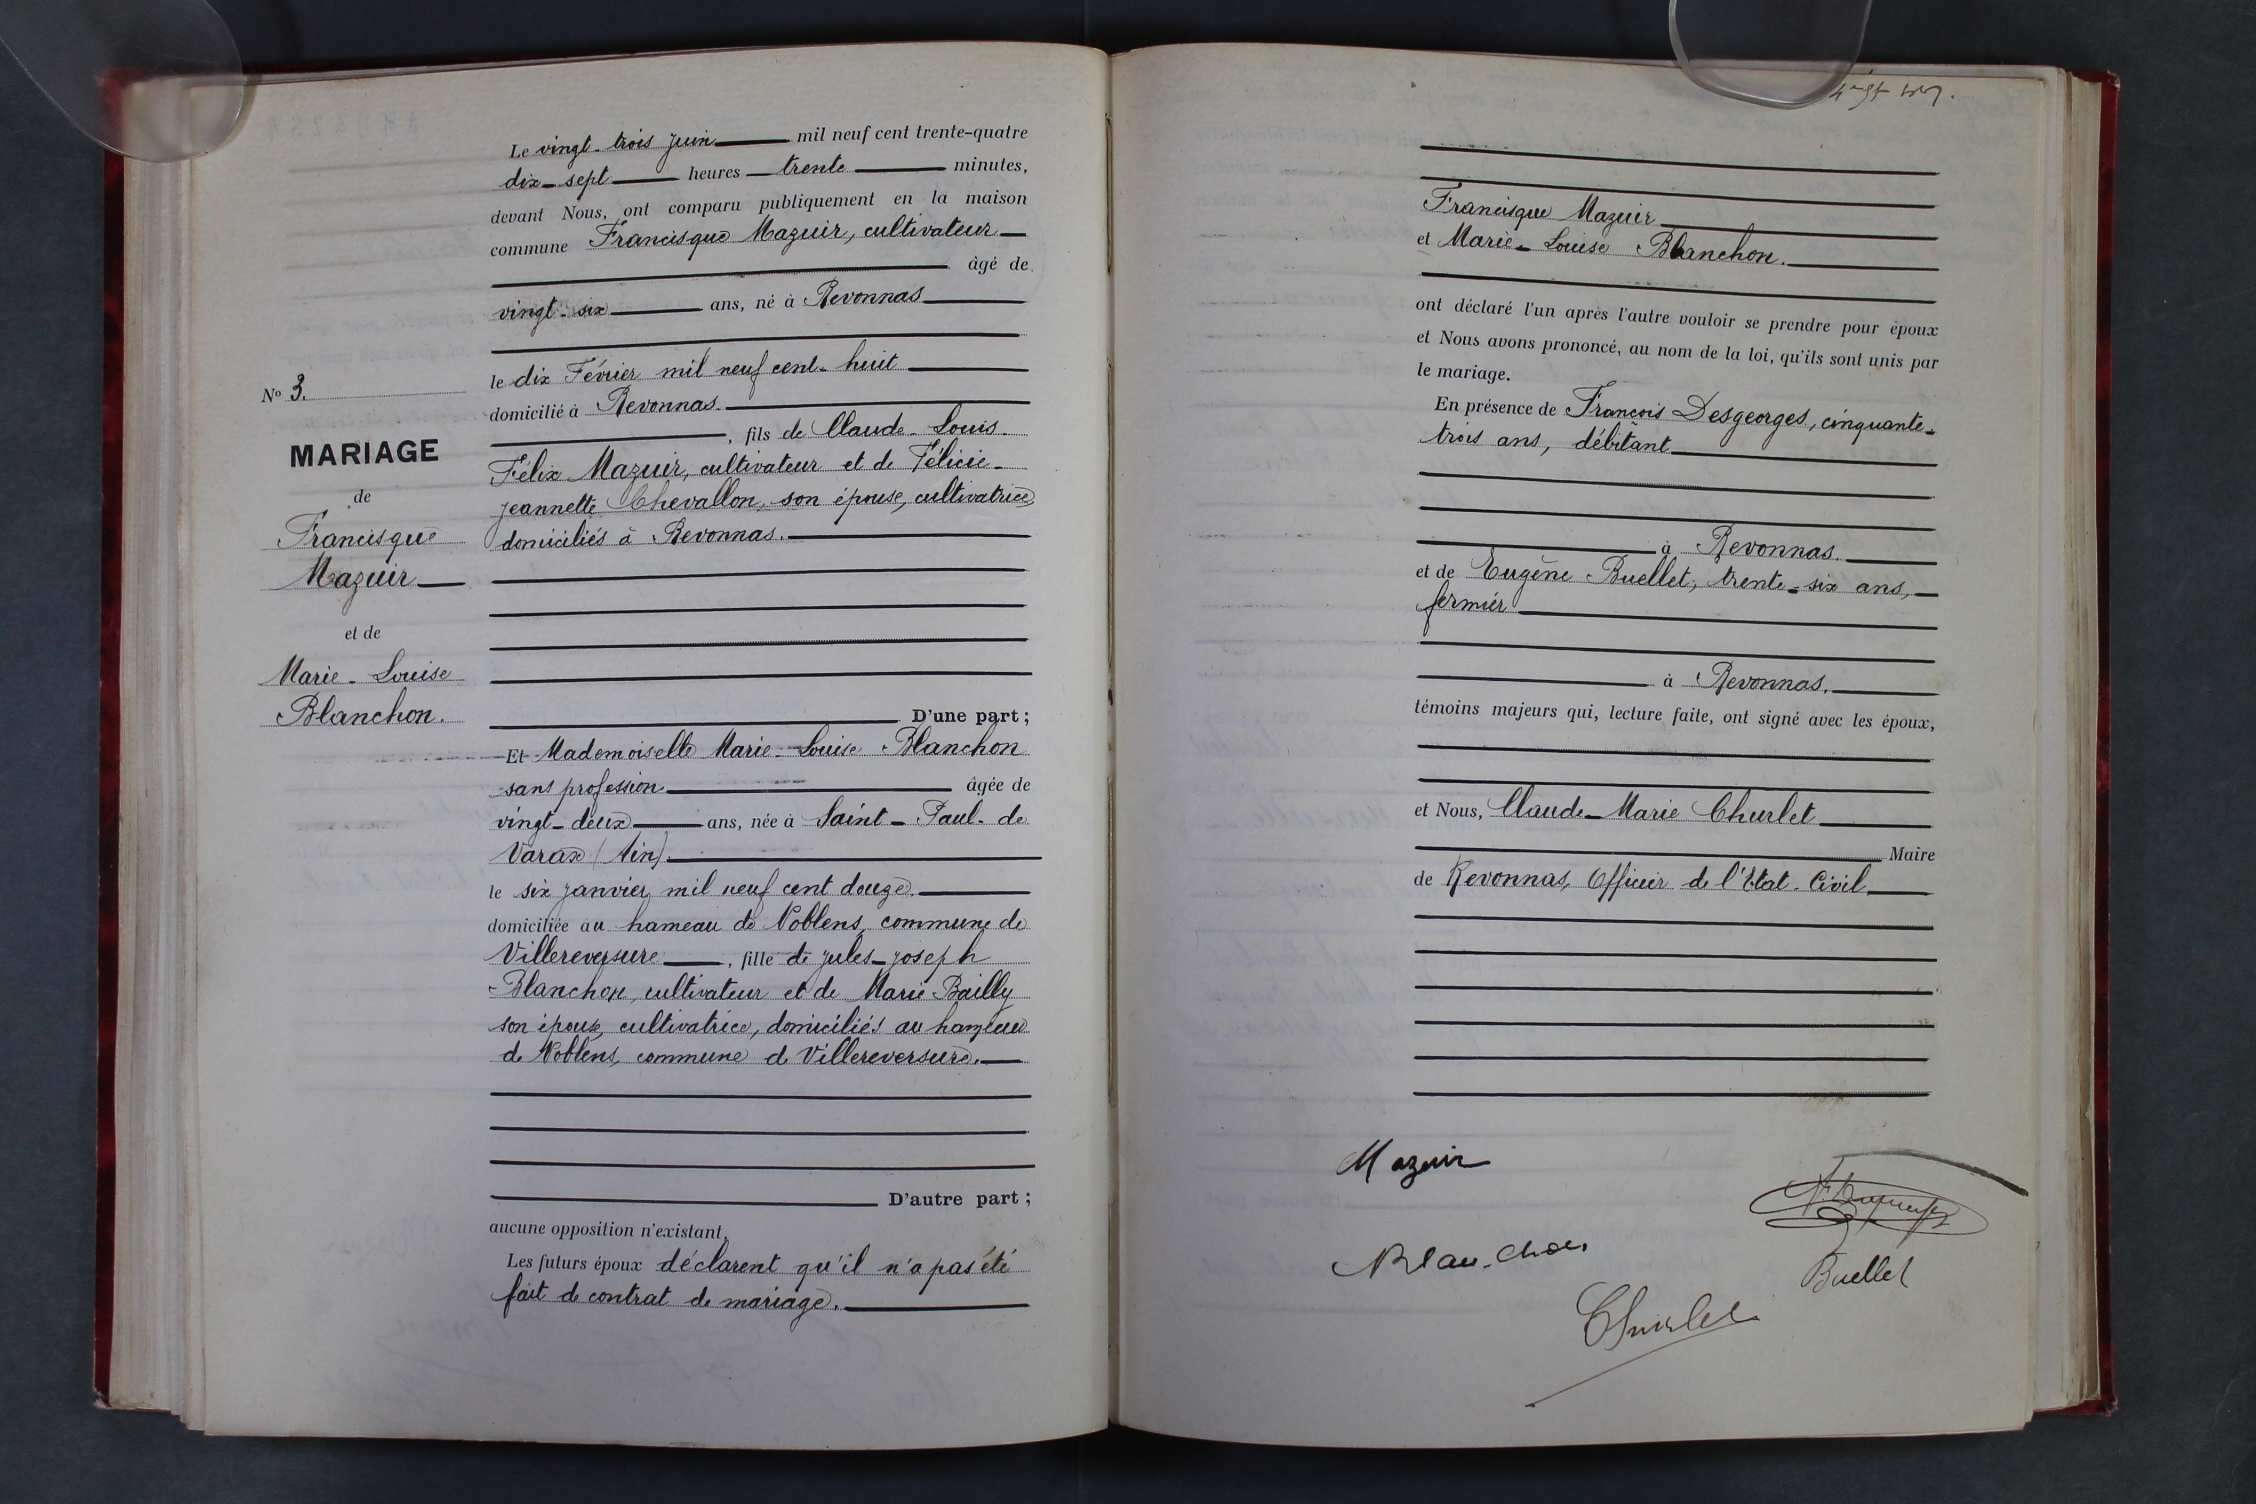 Le vingt-trois juin mil neuf cent trente-quatre
dix-sept heures trente minutes,
devant Nous, ont comparu publiquement en la maison
commune Francisque Mazuir, cultivateur
âgé de
vingt-six ans, né à Revonnas
le dix Février mil neuf cent-huit
domicilié à Revonnas.
, fils de Claude-Louis-
Félix Mazuir, cultivateur et de Félicie-
jeannette Chevallon, son épouse, cultivatrice
domiciliés à Revonnas.
No 3.
MARIAGE
de
Francisque
Mazuir
et de
Marie-Louise
Blanchon.
D'une part ;
Et Mademoiselle Marie-Louise Blanchon
sans profession âgée de
vingt-deux ans, née à Saint-Paul-de
Varax (Ain)
le six janvier mil neuf cent douze.
domiciliée au hameau de Noblens, commune de
Villereversure, fille de jules-joseph
Blanchon, cultivateur et de Marie Bailly
son épouse, cultivatrice, domiciliés au hameau
de Noblens, commune de Villereversure.
D'autre part ;
aucune opposition n'existant,
Les futurs époux déclarent qu'il n'a pas été
fait de contrat de mariage.
Francisque Mazuir
et Marie-Louise Blanchon.
ont déclaré l'un après l'autre vouloir se prendre pour époux
et Nous avons prononcé, au nom de la loi, qu'ils sont unis par
le mariage.
En présence de François Desgeorges, cinquante-
trois ans, débitant
à Revonnas.
et de Eugène Buellet, trente-six ans,
fermier
à Revonnas.
témoins majeurs qui, lecture faite, ont signé avec les époux,
et Nous, Claude-Marie Churlet
Maire
de Revonnas, Officier de l'Etat-Civil
Mazuir
Blanchon
Buellet
Churlet